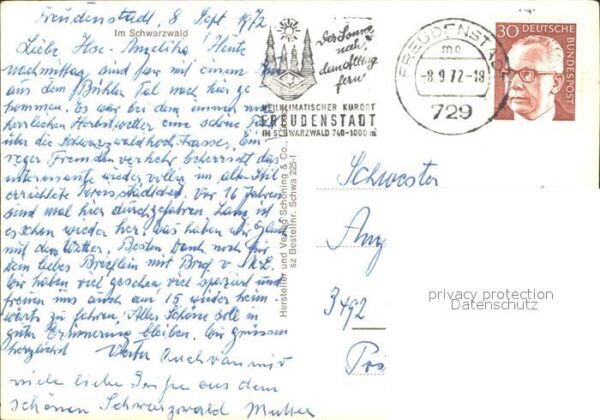 Freudenstadt, 8. Sept. 1972
Im Schwarzwald
Liebe Ilse-Angelika! Heute
nachmittag sind wir mit einem
aus dem Bühler Tal noch hier ge
kommen. Es war bei dem immer noch
herrlichen Herbstwetter eine schöne
über die Schwarzwaldhochstrasse. Ein
reger Fremdenverkehr beherrscht das
interessante wieder völlig im alten Stil
errichtete Kreisstädtchen. Vor 16 Jahren
sind mal hier durchgefahren. Lang ist
es schon wieder her. Was haben wir Glück
mit dem Wetter. Besten Dank noch für
Dein liebes Brieflein mit Brief v.
Wir haben viel gesehen, viel spaziert und
freuen uns auch am 15. wieder heim
wärts zu fahren. Alles Schöne soll in
guter Erinnerung bleiben. Wir grüssen
herzlichst Vater Auch von mir
viele liebe Grüße aus dem
schönen Schwarzwald Mutter
Hersteller und Verlag Schöning & Co.,
sz Bestellnr. Schwa 225
Der Sonne
nah,
dem Alltag
fern!
HEILKLIMATISCHER KURORT
FREUDENSTADT
IM SCHWARZWALD 740-1000 m
FREUDENSTADT
me
-8.9.72-18
729
30
DEUTSCHE BUNDESPOST
Schwester
Ang
3492
privacy protection
Datenschutz